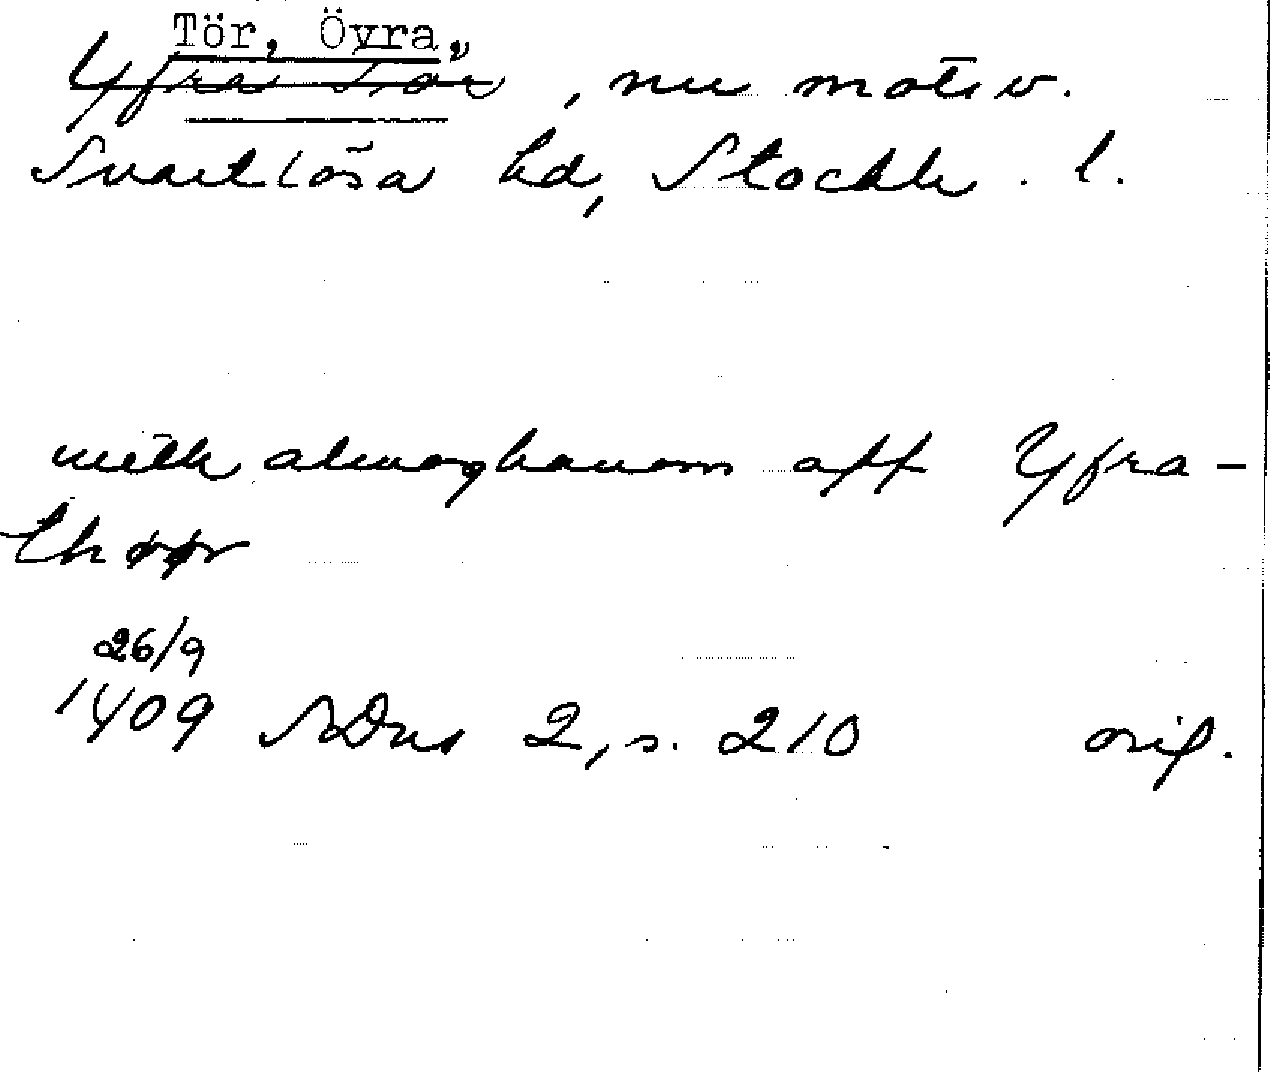 Tör, Övra,
Yfra Tör, nu motsv.
Svartlösa hd, Stockh. l.
meth almoghanom aff Yfra-
thøør
26/9
1409 SDns 2, s. 210 orig.